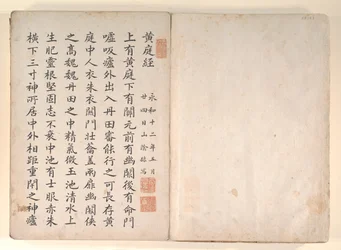 黄庭經
永和十二年五月
廿四日山陰縣寫
上有黄庭下有關元前有幽闕後有命門
嘘吸廬外出入丹田審能行之可長存黄
庭中人衣朱衣關門壯蘥蓋兩扉幽闕俠
之高巍巍丹田之中精氣微玉池清水上
生肥靈根堅固志不衰中池有士服赤朱
横下三寸神所居中外相距重閉之神廬